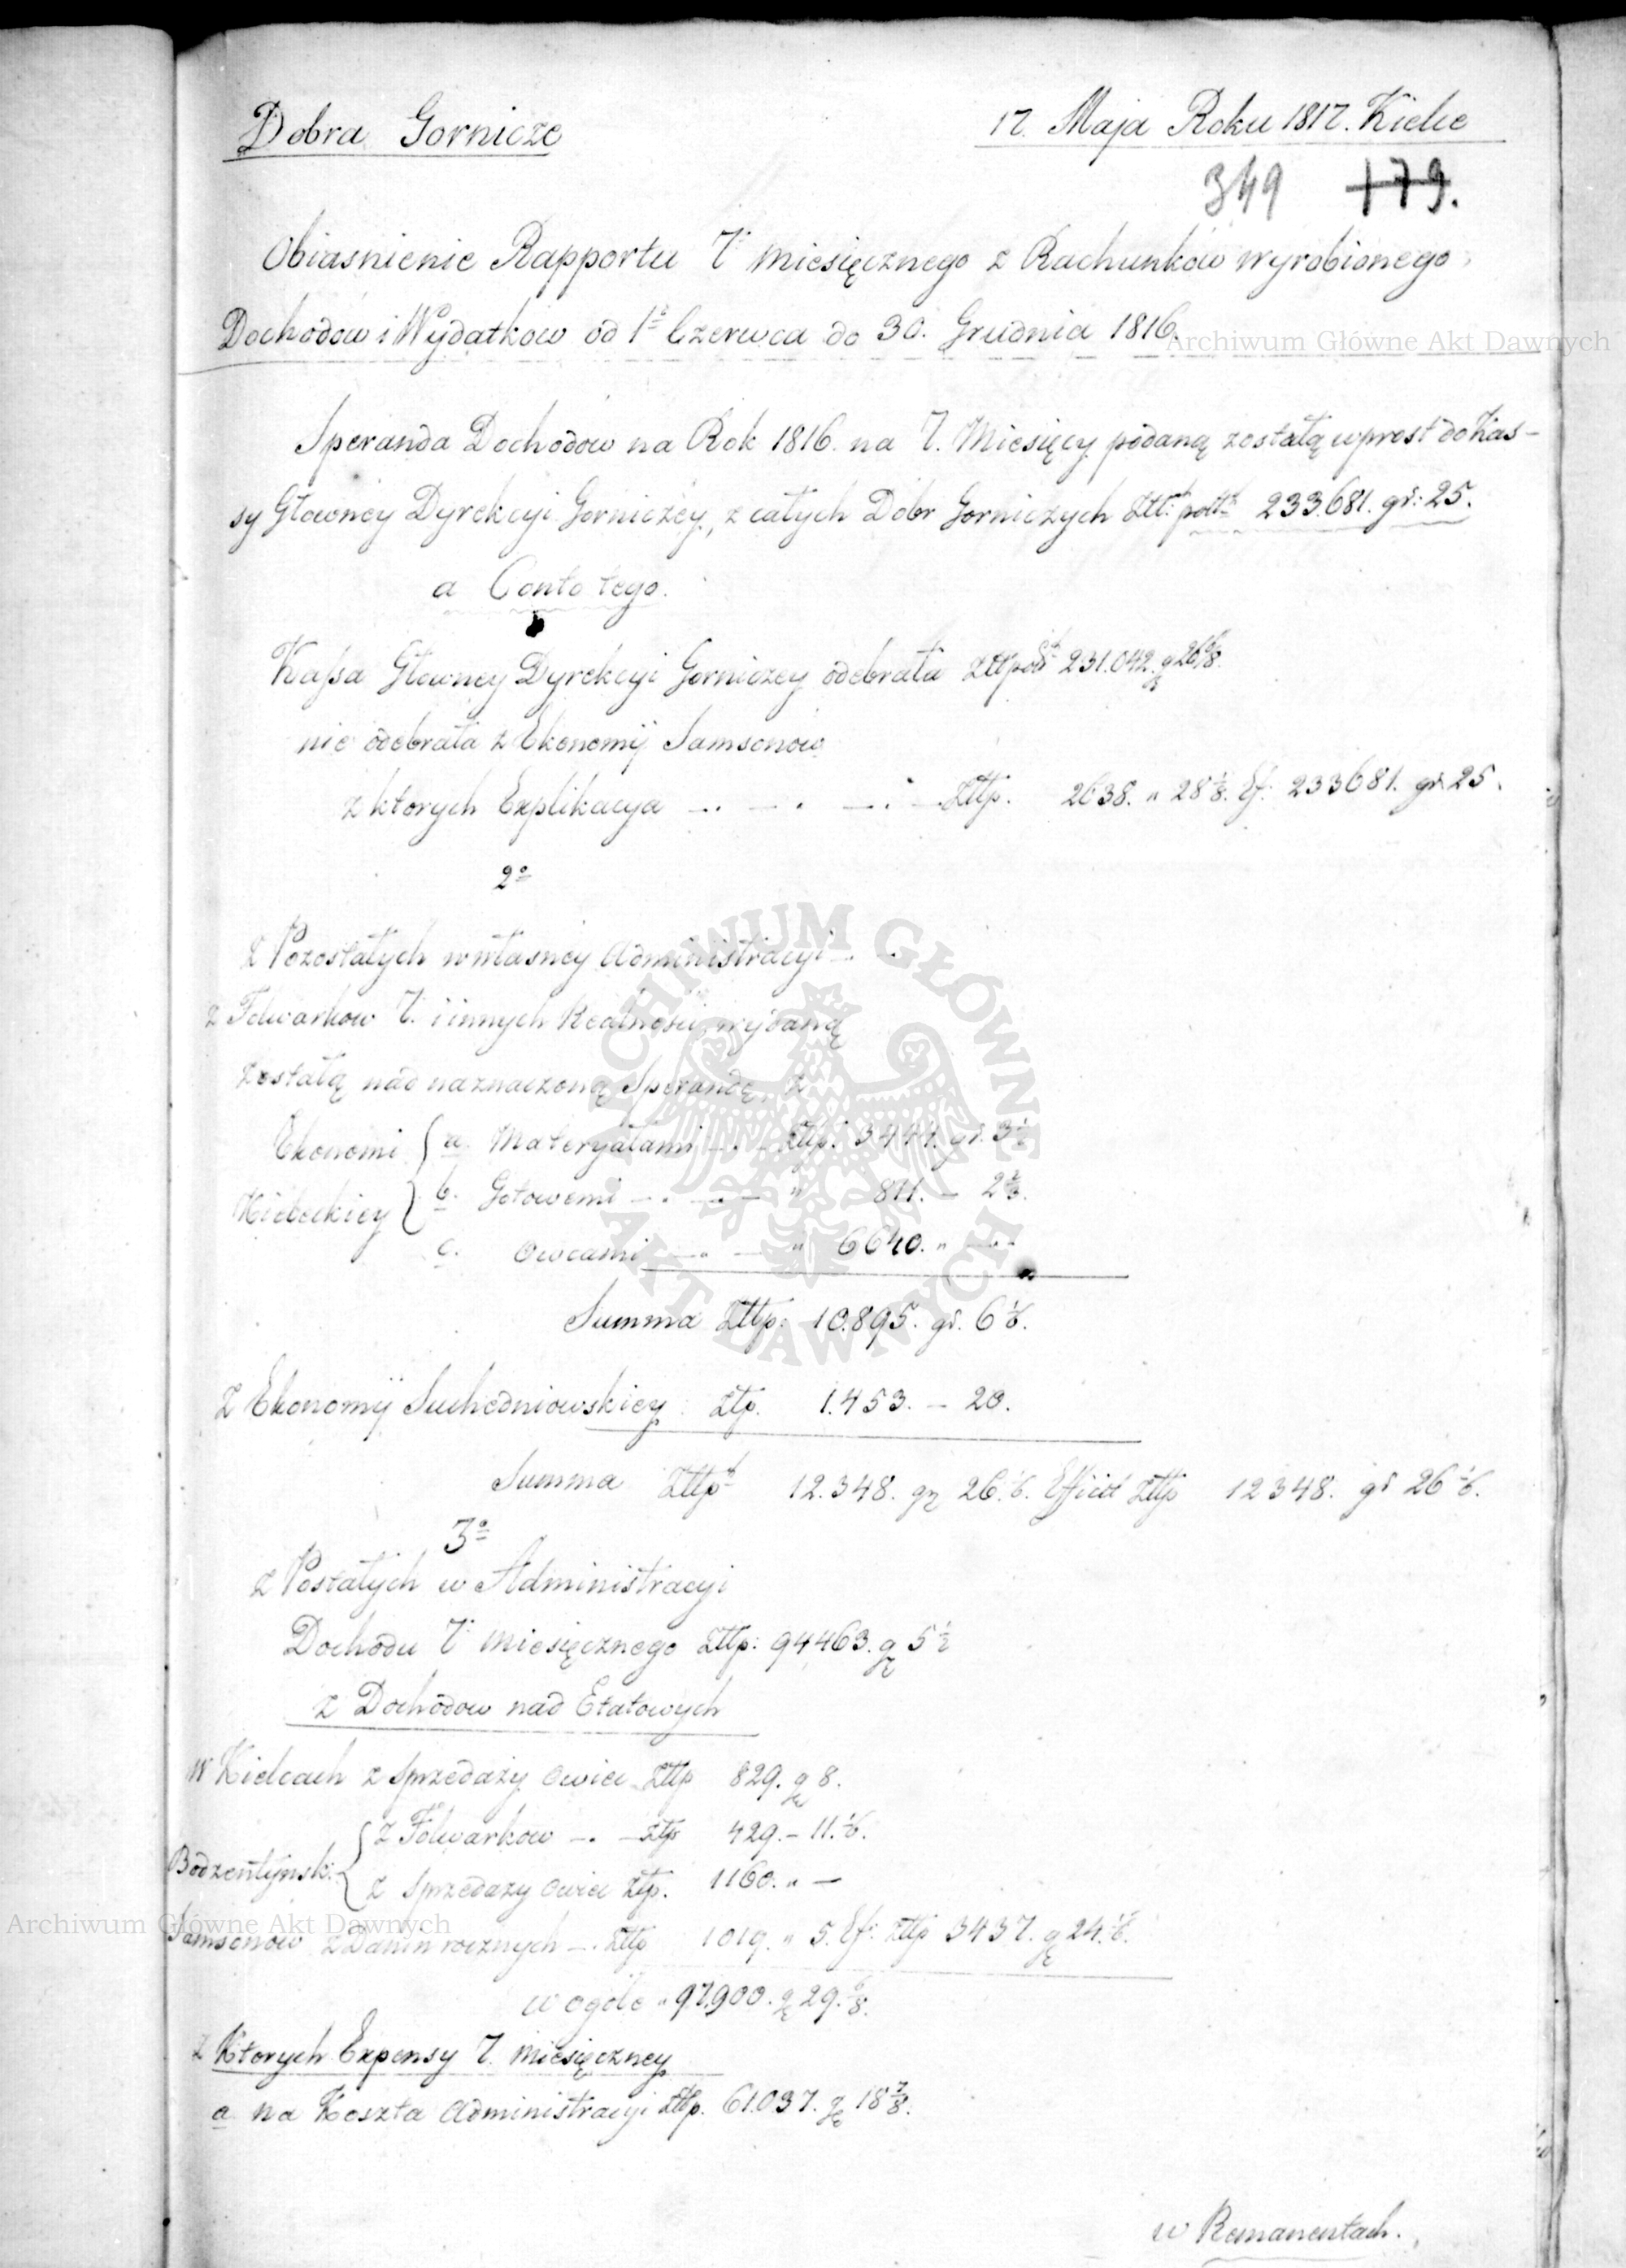 Dobra Gornicze
17. Maja Roku 1817. Kielce
349 179.
Obiasnienie Rapportu 7 miesięcznego z Rachunków wyrobionego
Dochodow i Wydatkow od 1º Czerwca do 30. Grudnia 1816.
Archiwum Główne Akt Dawnych
Speranda Dochodow na Rok 1816. na 7. Miesięcy podaną zostałą wprost do Kas-
sy Głowney Dyrekcyi Gorniczey, z całych Dobr Gorniczych Ztt: pols 233.681. gr: 25.
a Conto tego.
Kassa Głowney Dyrekcyi Gorniczey odebrała Zttpols 231.042. g 26 6/8.
nie odebrała z Ekonomÿ Samsonow
z ktorych Explikacya — . — . — . — Zttp. 2638. " 28 1/8. Ef: 233681. gr. 25.
2º
z Pozostałych w własney Administracyi — .
z Folwarkow 7. i innych Realnosci, wydaną
została nad naznaczoną Sperandę, z
Ekonomi a. Materyałami — . — Zttp. 3444. gr. 3 1/2
Kieleckiey b. Gotowemi — . — . — " 811. — 2 2/3.
c. Owcami — . — " 6640. " — . .
Summa Zttp: 10.895. gr. 6 1/6.
Z Ekonomÿ Suchedniowskiey Ztp. 1.453. — 20.
Summa Zttp 12.348. gr 26. 1/6. Efficit Zttp 12348. gr 26 1/6.
3º
z Postałych w Administracyi
Dochodu 7 miesięcznego Zttp: 94463. gr 5 1/2
z Dochodow nad Etatowych
w Kielcach z Sprzedaży Owiec Zttp 829. gr 8.
z Folwarkow — . — Ztp 429. — 11. 1/6.
Bodzentynsk:
z Sprzedaży owiec Ztp. 1160. " —
Archiwum Główne Akt Dawnych
Samsonow z Danin rocznych — . Zttp 1019. " 5. Ef: Zttp 3437. gr 24. 1/6.
w ogóle " 97.900. gr 29. 6/8.
z Ktorych Expensy 7. miesięczney
a na Koszta Administracyi Zttp. 61.037. gr 18 7/8.
w Remanentach.
ARCHIWUM GŁÓWNE AKT DAWNYCH